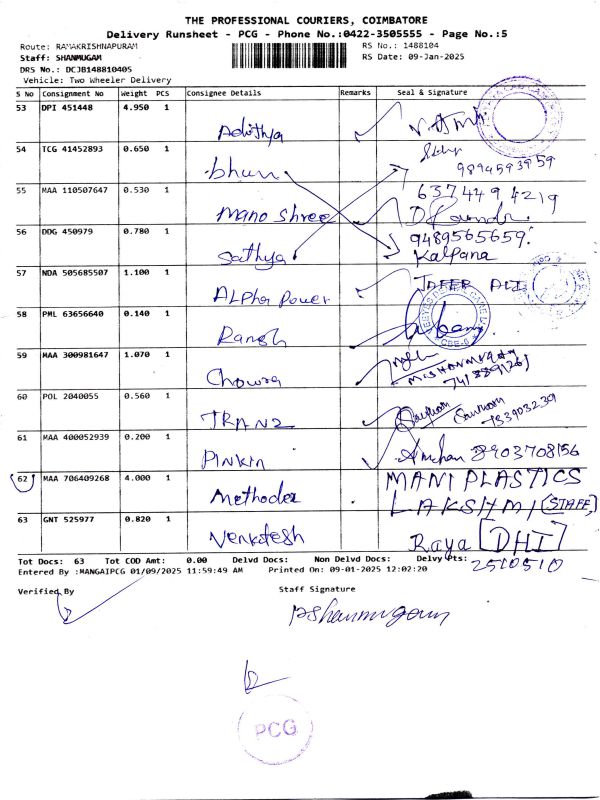 THE PROFESSIONAL COURIERS, COIMBATORE
Delivery Runsheet - PCG - Phone No.:0422-3505555 - Page No.:5
Route: RAMAKRISHNAPURAM RS No.: 1488104
Staff: SHANMUGAM RS Date: 09-Jan-2025
DRS No.: DCJB148810405
Vehicle: Two Wheeler Delivery
S No Consignment No Weight PCS Consignee Details Remarks Seal & Signature
53 DPI 451448 4.950 1
Adithya
54 TCG 41452893 0.650 1
bhuu 9894593959
55 MAA 110507647 0.530 1 637449 4219
Mano Shree
56 DDG 450979 0.780 1 9489565659
Sathya Kalpana
57 NDA 505685507 1.100 1
ALPha Power JAFER ALI
58 PML 63656640 0.140 1
Ranesh
59 MAA 300981647 1.070 1
Chowra M.SHANMUGAM
60 POL 2040055 0.560 1
TRANZ
61 MAA 400052939 0.200 1
Pinkin 8903708156
62 MAA 706409268 4.000 1 MANI PLASTICS
Methodex LAKSHMI (STAFF)
63 GNT 525977 0.820 1
Venkatesh Raya [DHI]
2510510
Tot Docs: 63 Tot COD Amt: 0.00 Delvd Docs: Non Delvd Docs: Delvy Pts:
Entered By :MANGAIPCG 01/09/2025 11:59:49 AM Printed On: 09-01-2025 12:02:20
Verified By Staff Signature
PShanmugam
PCG